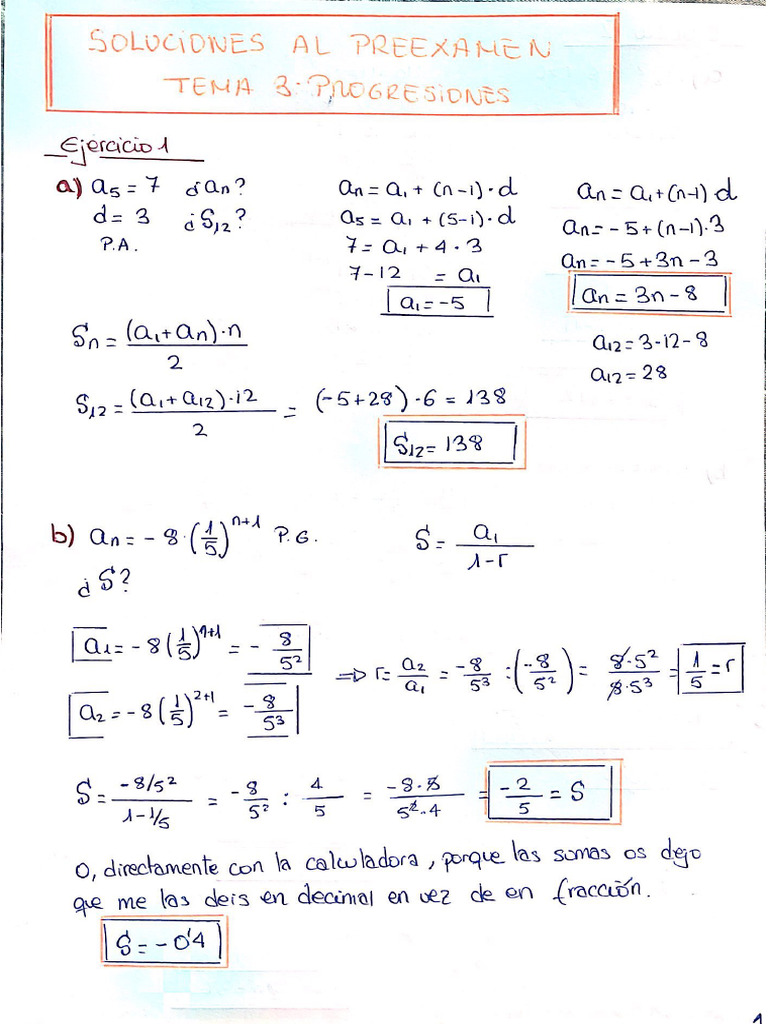 SOLUCIONES AL PREEXAMEN
TEMA 3: PROGRESIONES
Ejercicio 1
a) a₅ = 7 ¿an?
d = 3 ¿S₁₂?
P.A.
an = a₁ + (n-1)·d
a₅ = a₁ + (5-1)·d
7 = a₁ + 4·3
7-12 = a₁
a₁ = -5
an = a₁ + (n-1) d
an = -5 + (n-1)·3
an = -5 + 3n - 3
an = 3n - 8
a₁₂ = 3·12 - 8
a₁₂ = 28
Sn = (a₁ + an)·n / 2
S₁₂ = (a₁ + a₁₂)·12 / 2 = (-5 + 28)·6 = 138
S₁₂ = 138
b) an = -8·(1/5)ⁿ⁺¹ P.G.
¿S?
S = a₁ / 1-r
a₁ = -8(1/5)¹⁺¹ = -8/5²
a₂ = -8(1/5)²⁺¹ = -8/5³
⇒ r = a₂/a₁ = -8/5³ : (-8/5²) = 8·5²/8·5³ = 1/5 = r
S = -8/5² / 1-1/5 = -8/5² : 4/5 = -8·5/5²·4 = -2/5 = S
O, directamente con la calculadora, porque las sumas os dejo
que me las deis en decimal en vez de en fracción.
S = -0'4
1